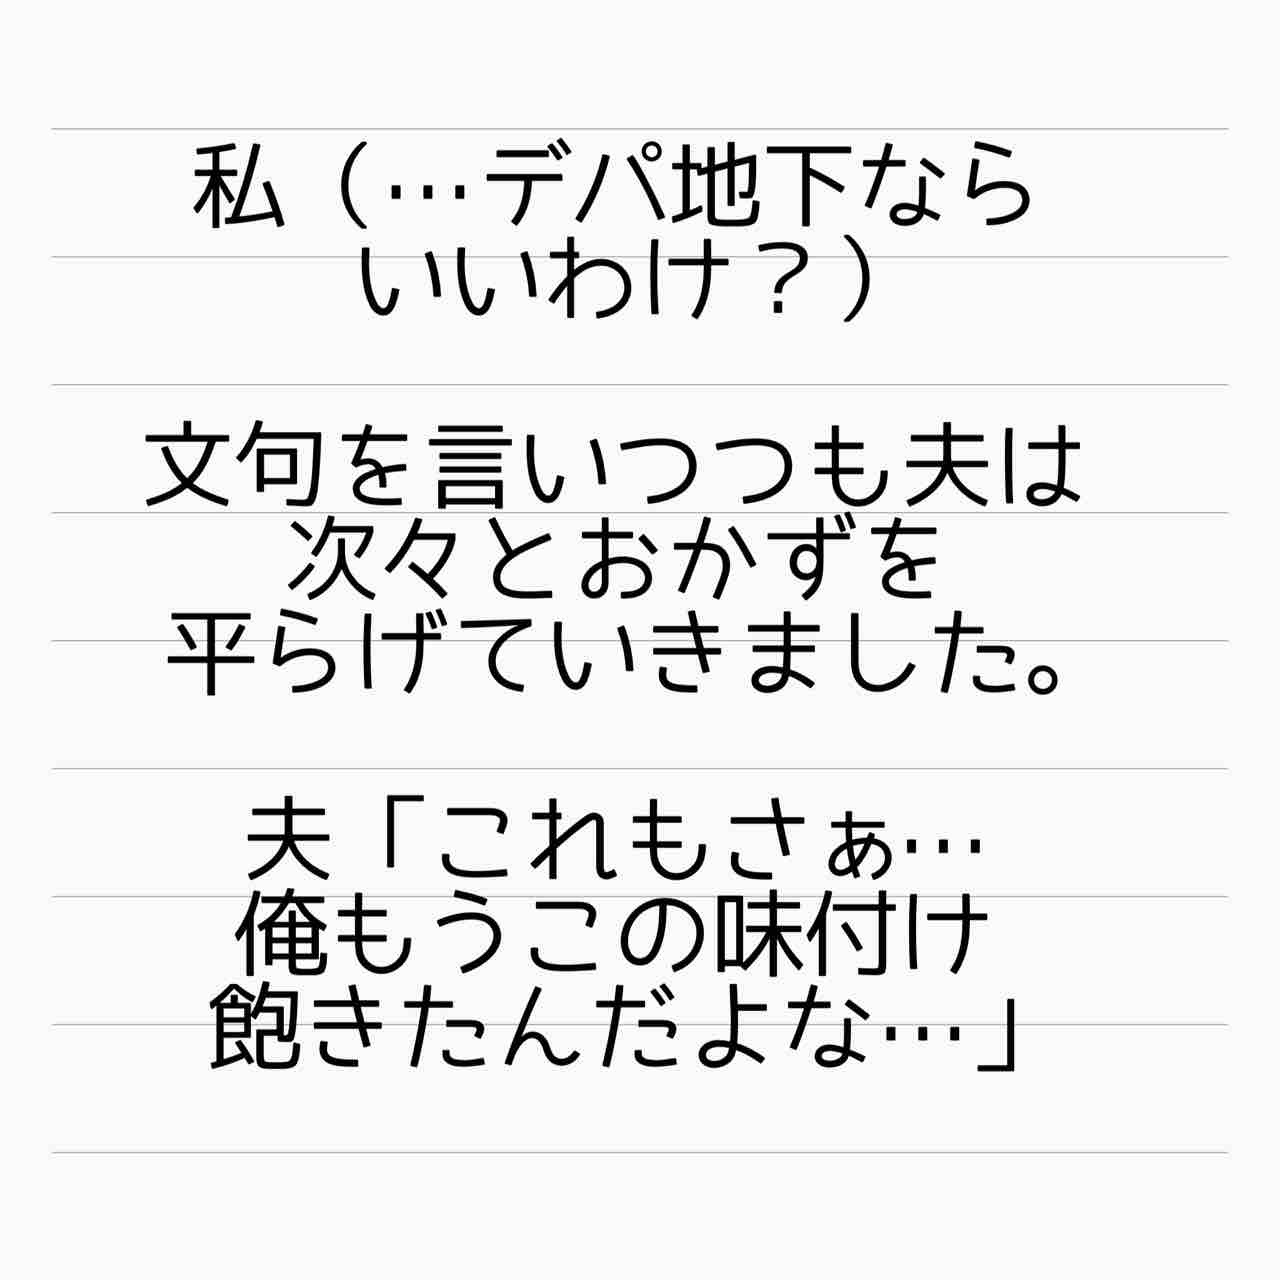 私（…デパ地下なら
いいわけ？）
文句を言いつつも夫は
次々とおかずを
平らげていきました。
夫「これもさぁ…
俺もうこの味付け
飽きたんだよな…」